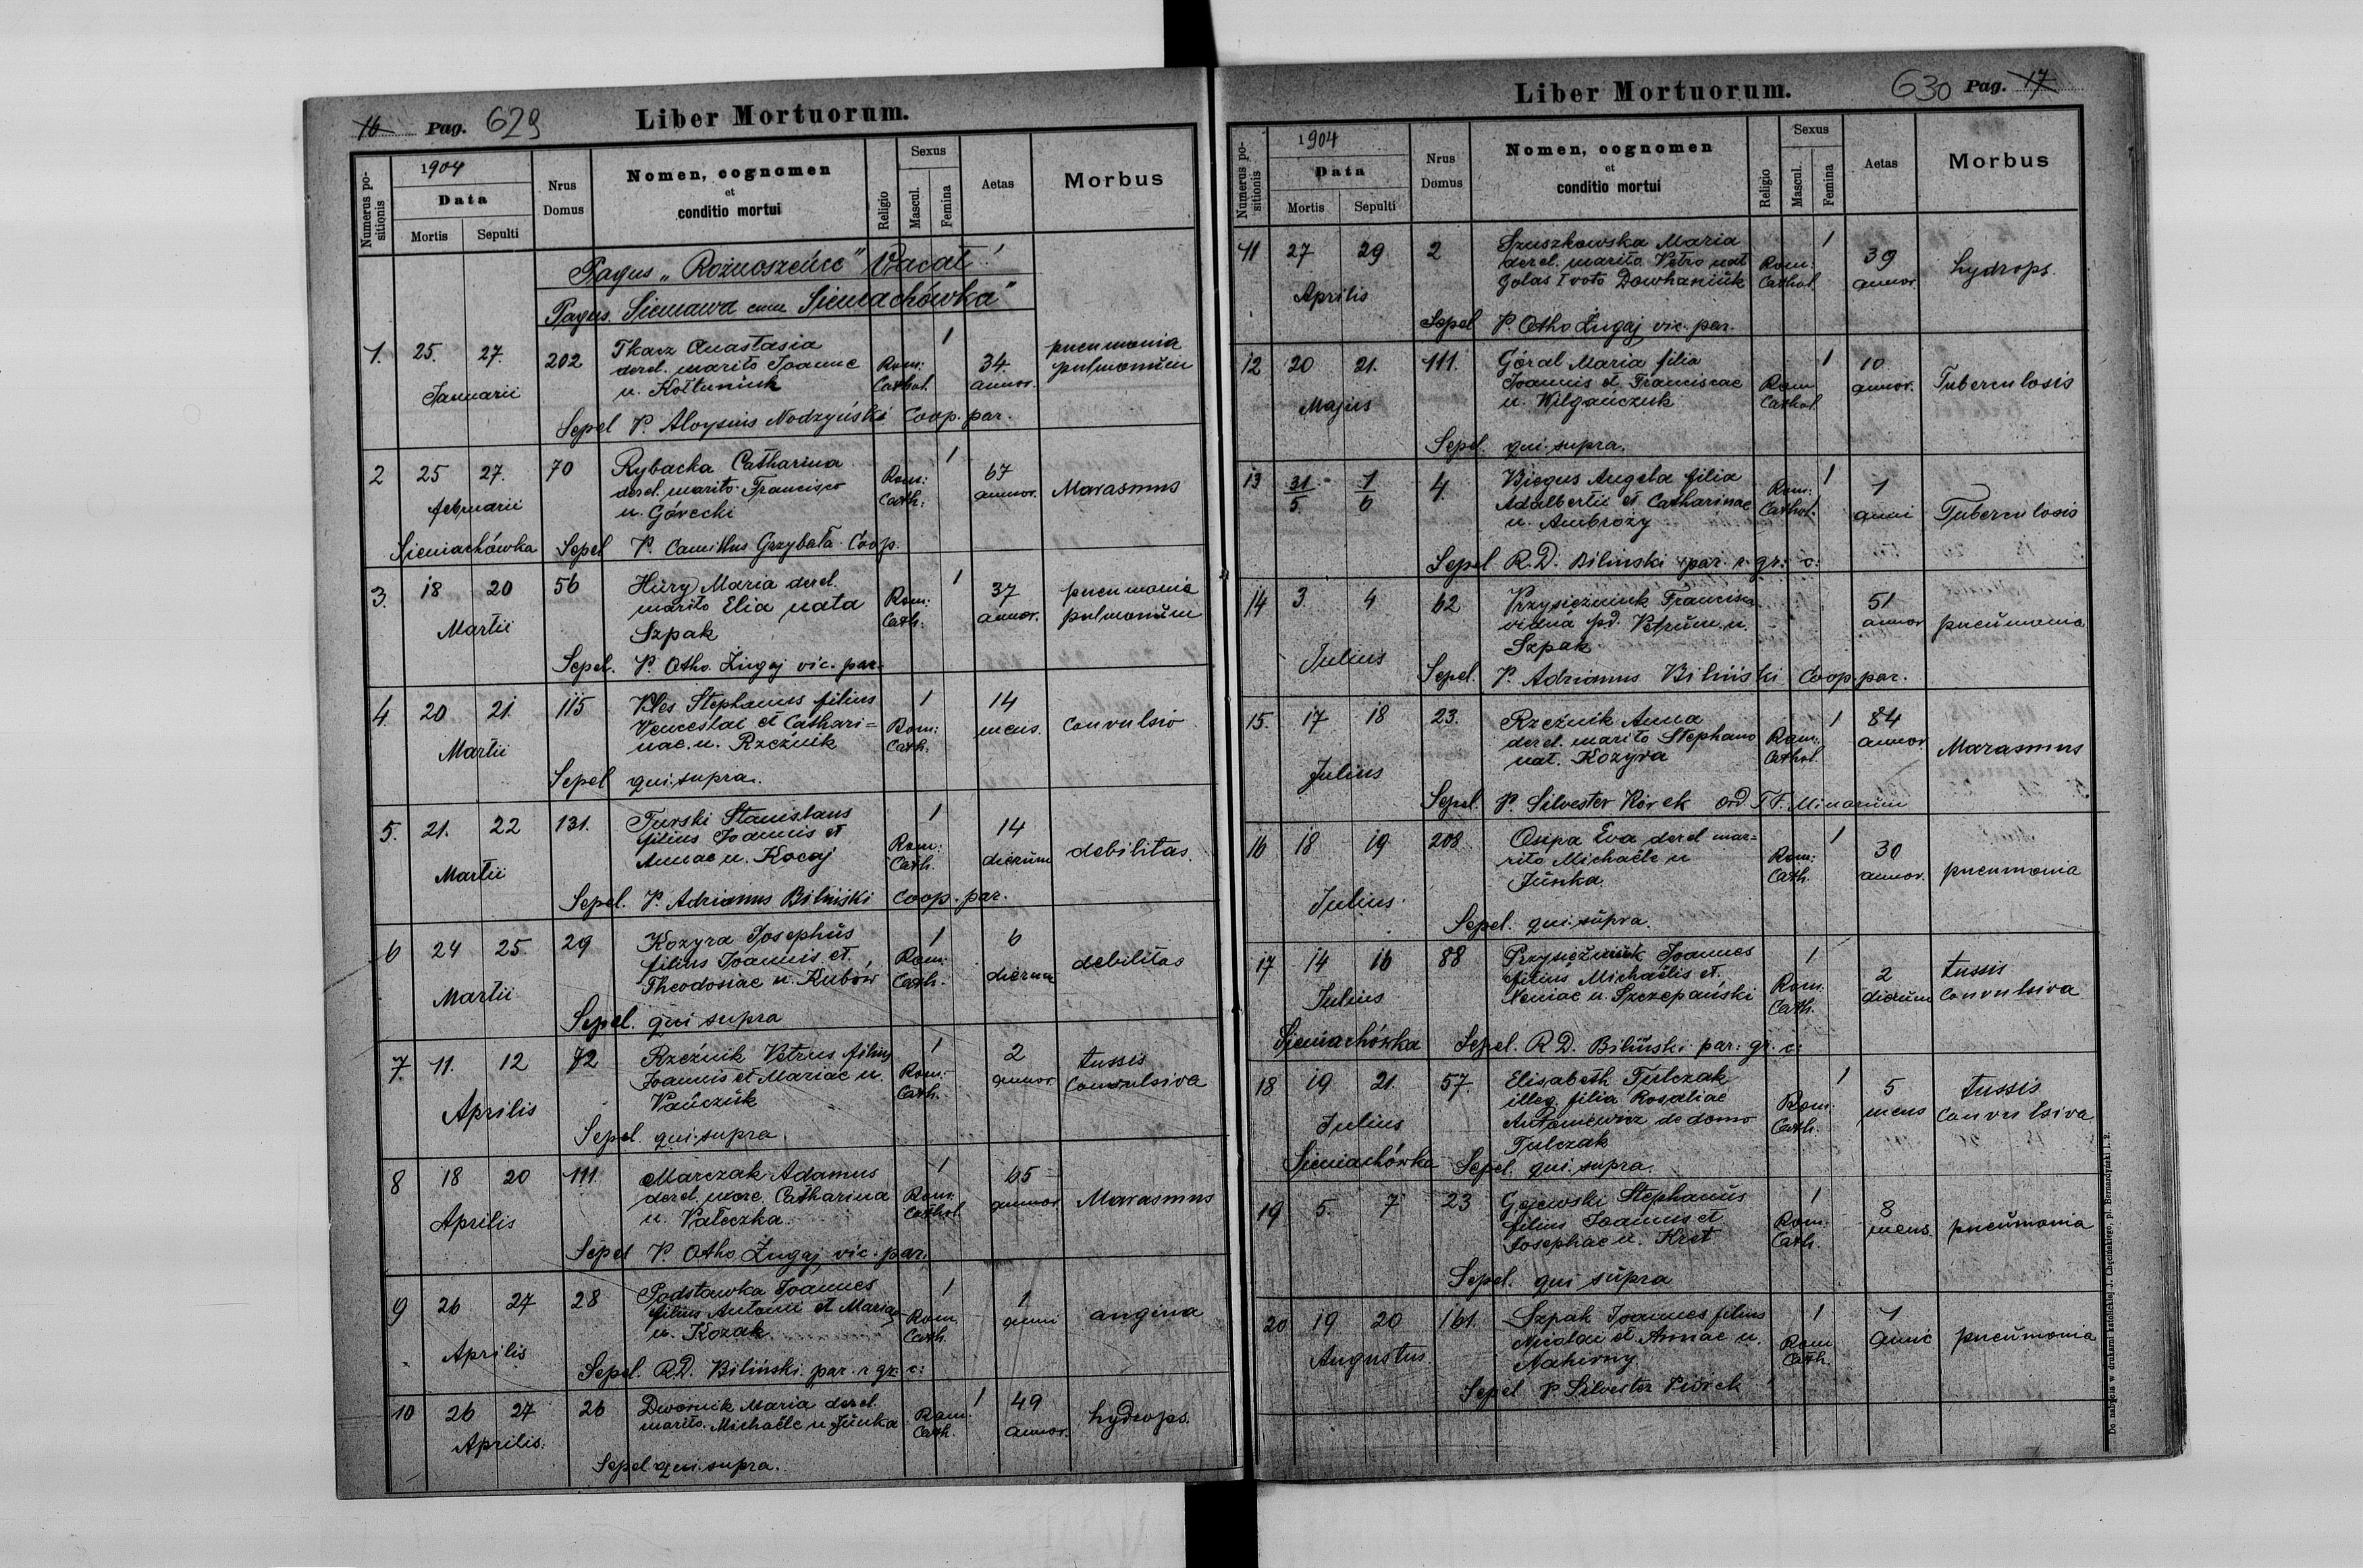 16 Pag. 629
Liber Mortuorum.
Numerus positionis
1904
Data
Mortis
Sepulti
Nrus Domus
Nomen, cognomen
et
conditio mortui
Religio
Sexus
Mascul.
Femina
Aetas
Morbus
Pagus "Rożnoszeńce" Vacat!
Pagus. Sieniawa cum Sieniachówka"
1. 25. 27. 202 Tkacz Anastasia 1 pneumonia
derel. marito Joanne Rom: 34. pulmonum
Januarii u. Kołtuniuk Cathol. annor.
Sepel P. Aloysius Nodzyński Coop. par.
2 25 27. 70 Rybacka Catharina 1
derel. marito Francisco Rom: 67 Marasmus
februarii n. Górecki Cath: annor.
Sieniachówka Sepel P. Camillus Grzybała Coop.
3. 18 20 56 Hury Maria derel. 1
marito Elia nata Rom: 37 pneumonia
Martii Szpak Cath: annor. pulmonum
Sepel. P. Otho Żugaj vic. par.
4. 20 21. 115 Ples Stephanus filius 1 14
Venceslai et Cathari= Rom: mens. convulsio
Martii nae. n. Rzeźnik Cath.
Sepel qui supra.
5. 21. 22 131. Turski Stanislaus 1
filius Joannis et Rom: 14
Martii Annae n. Kocaj Cath. dierum debilitas.
Sepel. P. Adrianus Biliński Coop. par.
6 24 25 29 Kozyra Josephus 1 6
filius Joannis et Rom: debilitas
Martii Theodosiae n. Kubów Cath. dierum
Sepel. qui supra
7. 11. 12 72 Rzeźnik Petrus filius 1 2 tussis
Joannis et Mariae n. Rom: annor. Convulsiva
Aprilis Pańczuk Cath.
Sepel. qui supra.
8 18 20 111. Marczak Adamus 1 65
derel. uxore Catharina Rom: annor Marasmus
Aprilis n. Pałeczka Cathol
Sepel P. Otho Żugaj vic. par.
9 26 27 28 Podstawka Joannes 1
filius Antonii et Mariae Rom. 1 angina
Aprilis n. Kozak. Cath. anni
Sepel. R.D. Biliński. par. r. gr. c:
10 26 27 26 Dwornik Maria derel 1 49
marito. Michaële n Junka Rom. annor. hydrops.
Aprilis. Cath.
Sepel qui supra.
Liber Mortuorum.
630 Pag. 17
Numerus positionis
1904
Data
Mortis
Sepulti
Nrus
Domus
Nomen, cognomen
et
conditio mortui
Religio
Sexus
Mascul.
Femina
Aetas
Morbus
11 27 29 2 Szuszkowska Maria 1
derel. marito Petro nat Rom: 39 hydrops.
Aprilis Golas I voto Dowhaniuk Cathol. annor
Sepel P. Otho Żugaj vic. par.
12 20 21. 111. Góral Maria filia 1 10
Joannis et Franciscae Rom annor. Tuberculosis
Majus n. Wilgańczuk Cathol
Sepel. qui supra.
13 31/5. 1/6 4. Biegus Angela filia 1
Adalbertii et Catharinae Rom: 1
n. Ambroży Cathol. anni Tuberculosis
Sepel R.D. Biliński par. r. gr: c:
14 3. 4 62 Przysiężniuk Francisca 51
vidua pd. Petrum. n. annor pneumonia
Julius Szpak
Sepel. P. Adrianus Biliński Coop. par.
15. 17 18 23. Rzeźnik Anna 1 84
derel. marito Stephano Rom: annor. Marasmus
Julius nat. Kozyra Cathol.
Sepel. P. Silvester Piórek Ord. F.F. Minorum
16 18 19 208 Osipa Eva derel mar=
rito Michaële n Rom: 1 30 pneumonia
Julius. Junka. Cath. annor.
Sepel. qui supra.
17 14 16 88 Przysiężniuk Joannes 1 tussis
filius Michaëlis et Rom. 2 Convulsiva
Julius Xeniae n. Szczepański Cath. dierum
Sieniachówka Sepel. R D. Biliński par: gr. c:
18 19 21. 57. Elisabeth Tulczak 1 5 tussis
illeg. filia Rosaliae Rom: mens Convulsiva
Julius Antoniewicz de domo Cath.
Tulczak
Sieniachówka Sepel. qui supra.
19 5. 7 23 Gajewski Stephanus 1 8
filius Joannis et Rom. mens. pneumonia
Josephae n. Kret Cath.
Sepel. qui supra
20 19 20 161. Szpak Joannes filius 1 1
Nicolai et Annae n. Rom anni pneumonia
Augustus. Nahirny Cath.
Sepel P. Silvester Piórek
Do nabycia w drukarni katolickiej J. Chęcińskiego, pl. Bernardyński l. 2.